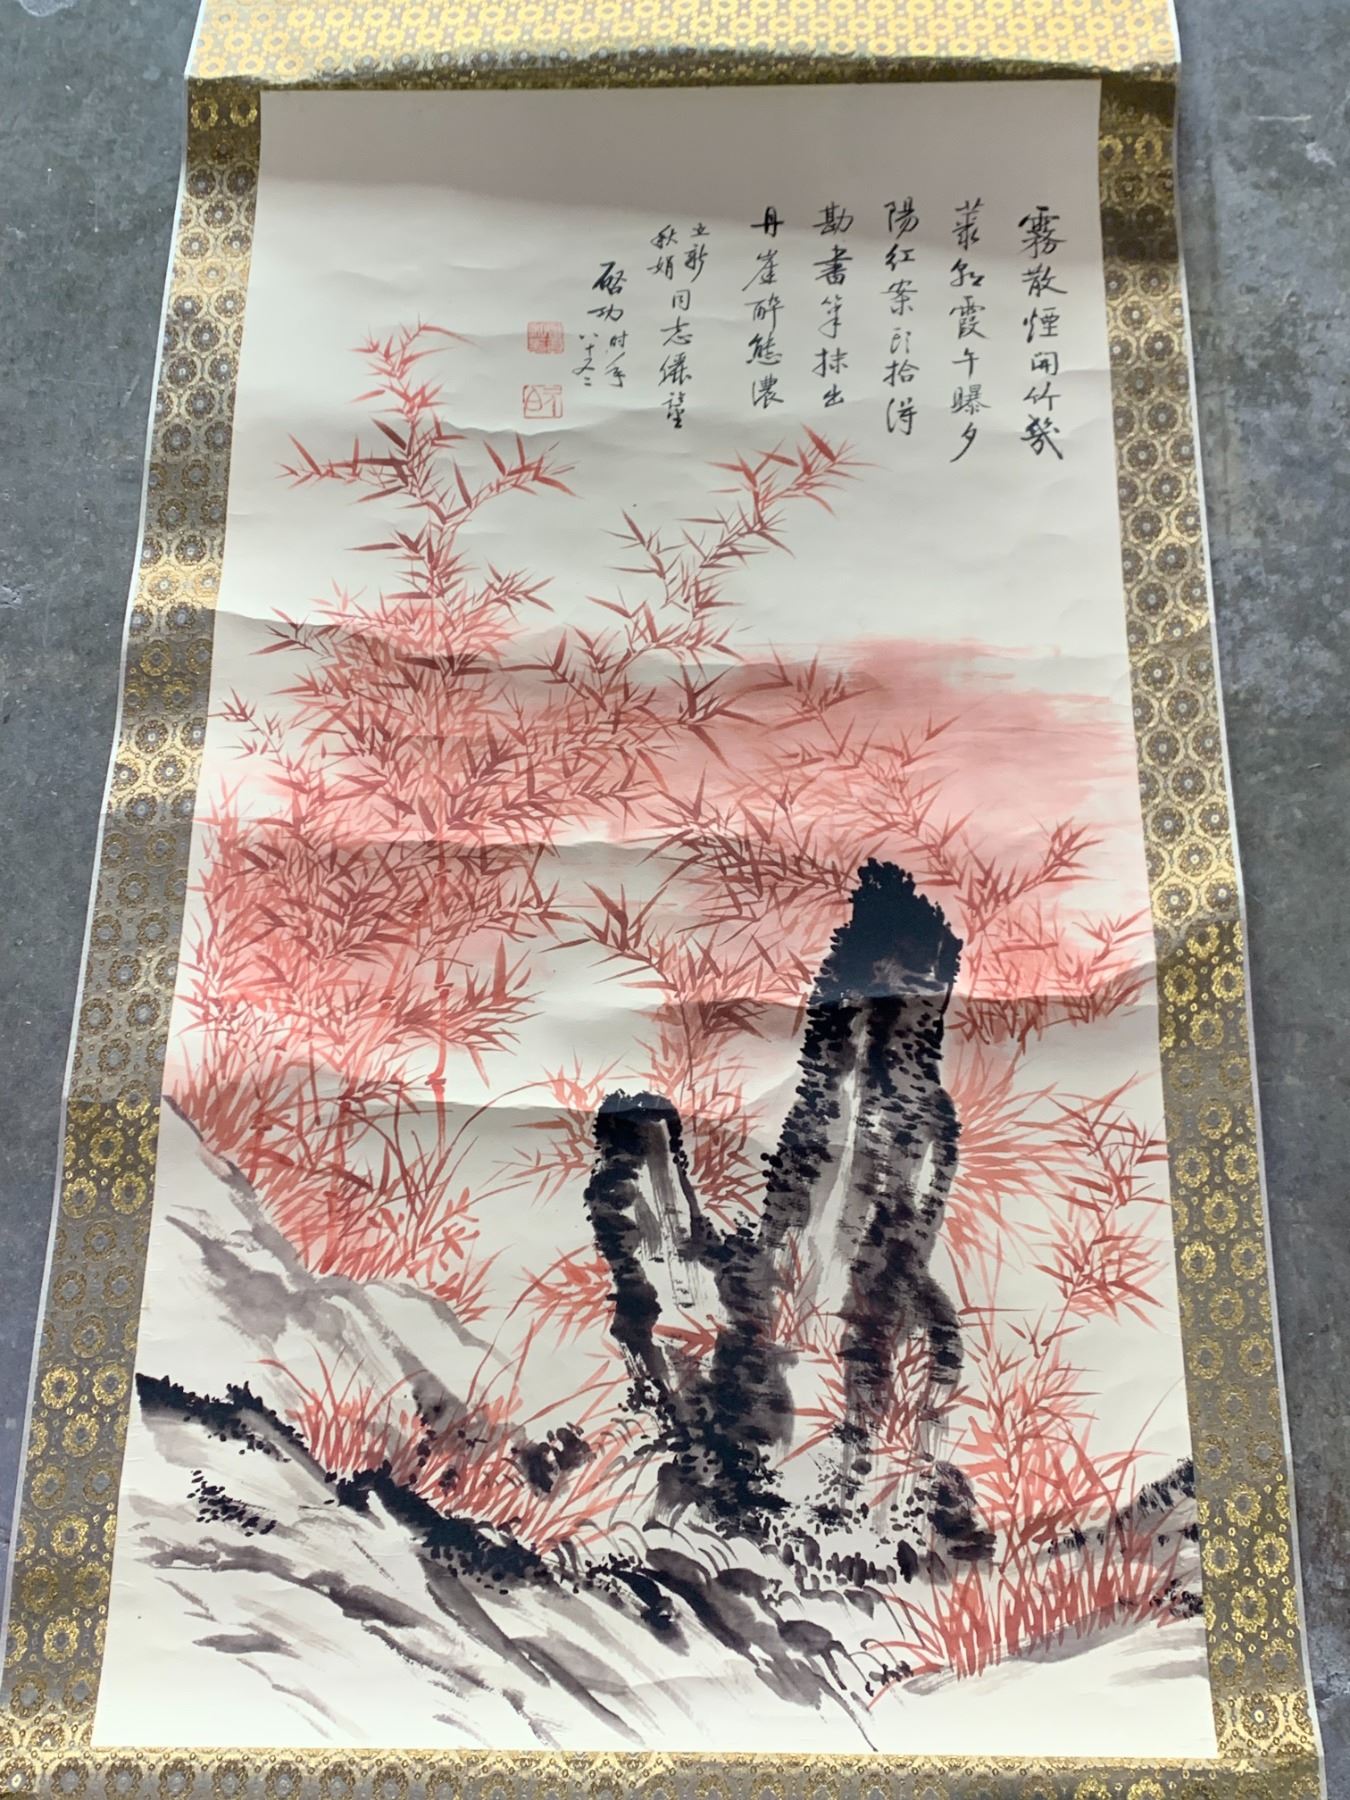 霧散煙開竹幾
叢朝霞午曝夕
陽紅案頭拾得
勘書筆抹出
丹崖醉態濃
立新
秋娟同志儷望
啟功時年
八十又二